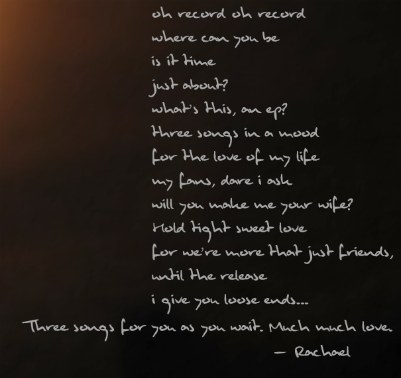 oh record oh record
where can you be
is it time
just about?
what's this, an ep?
three songs in a mood
for the love of my life
my fans, dare i ask
will you make me your wife?
Hold tight sweet love
for we're more that just friends,
until the release
i give you loose ends...
Three songs for you as you wait. Much much love.
— Rachael